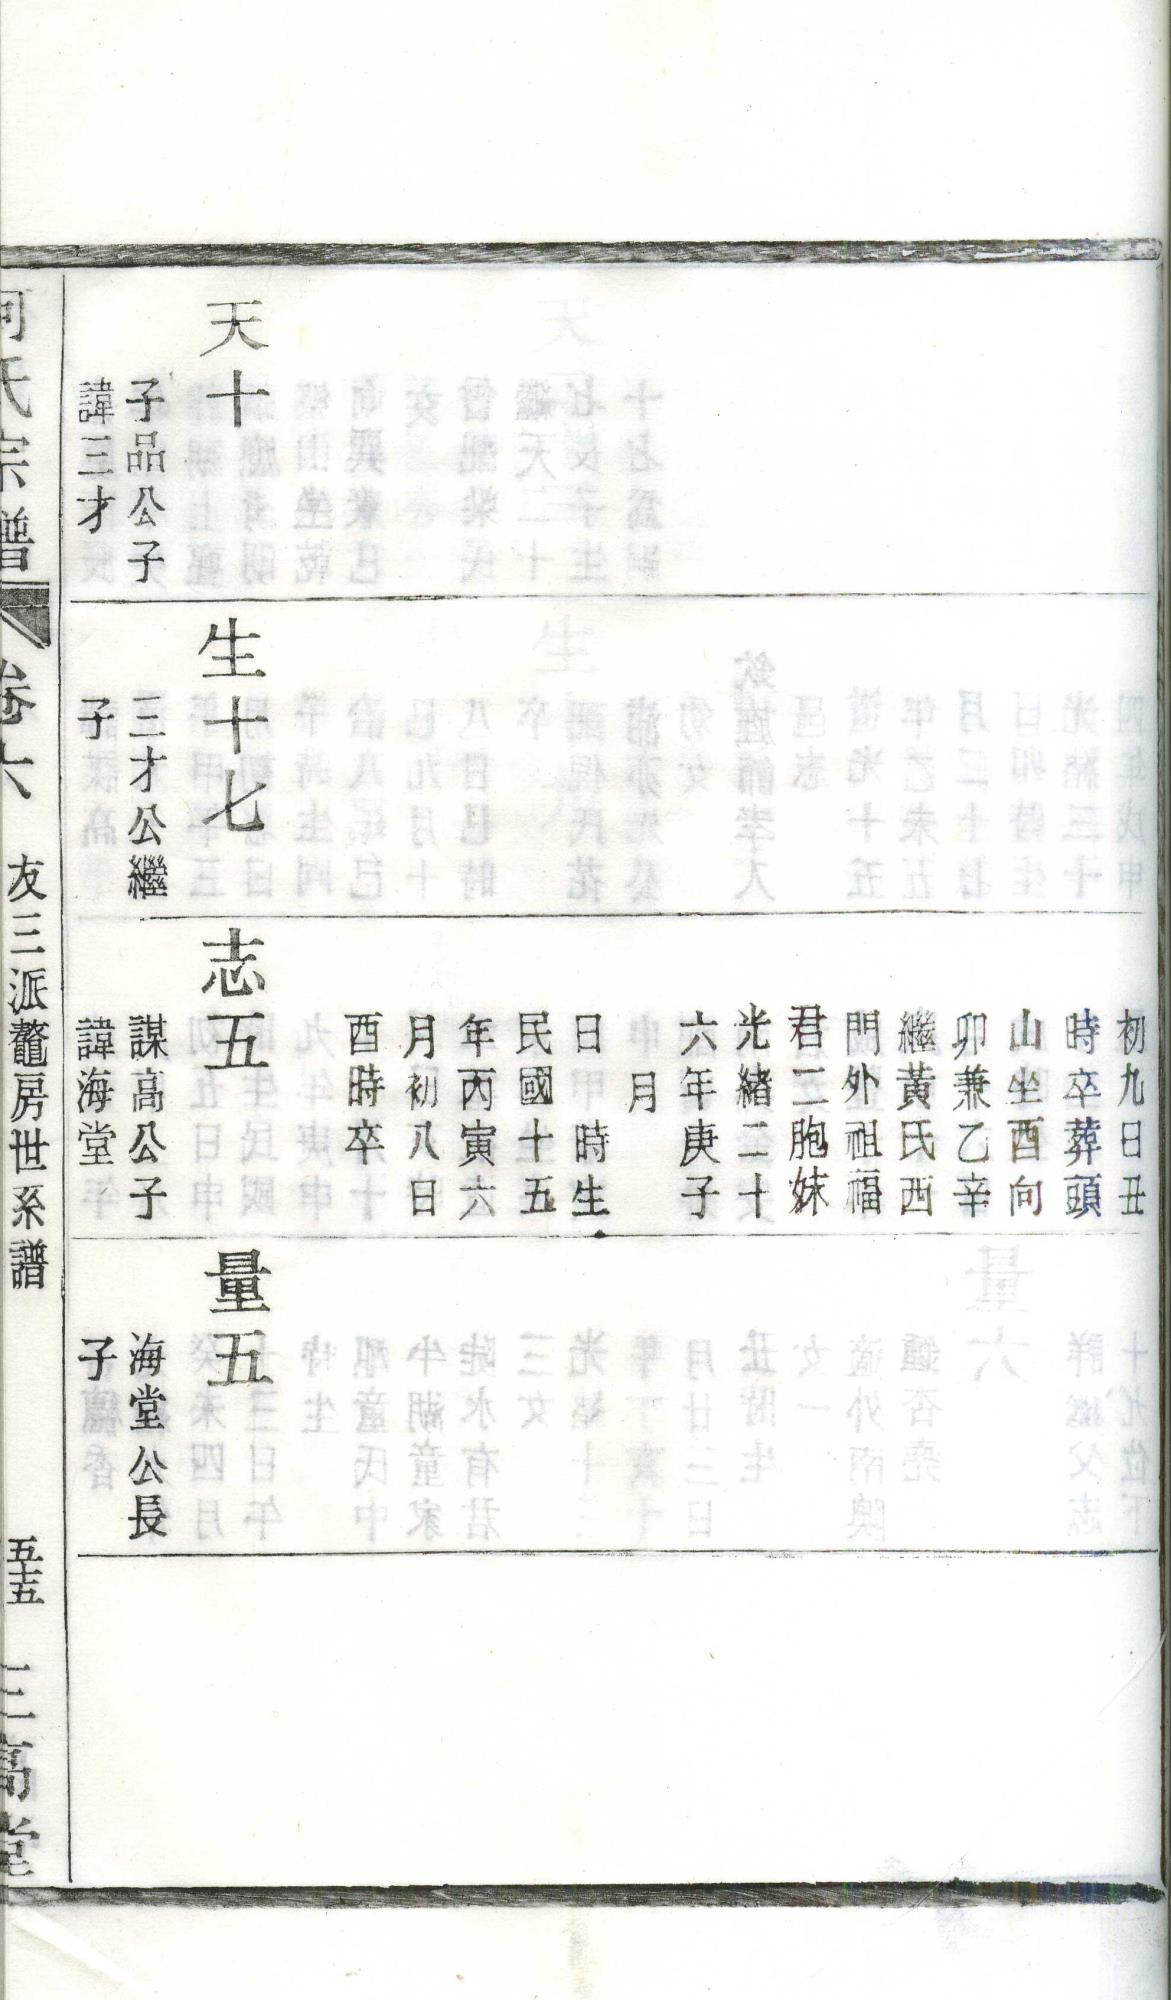 天十
子品公子
諱三才
生十七
三才公繼
子
初九日丑
時卒葬頭
山坐酉向
卯兼乙辛
繼黃氏西
門外祖福
君二胞妹
光緒二十
六年庚子
月
日時生
民國十五
年丙寅六
月初八日
酉時卒
志五
謀高公子
諱海堂
量五
海堂公長
子
氏宗譜
卷六
友三派鼇房世系譜
五十五
三高堂